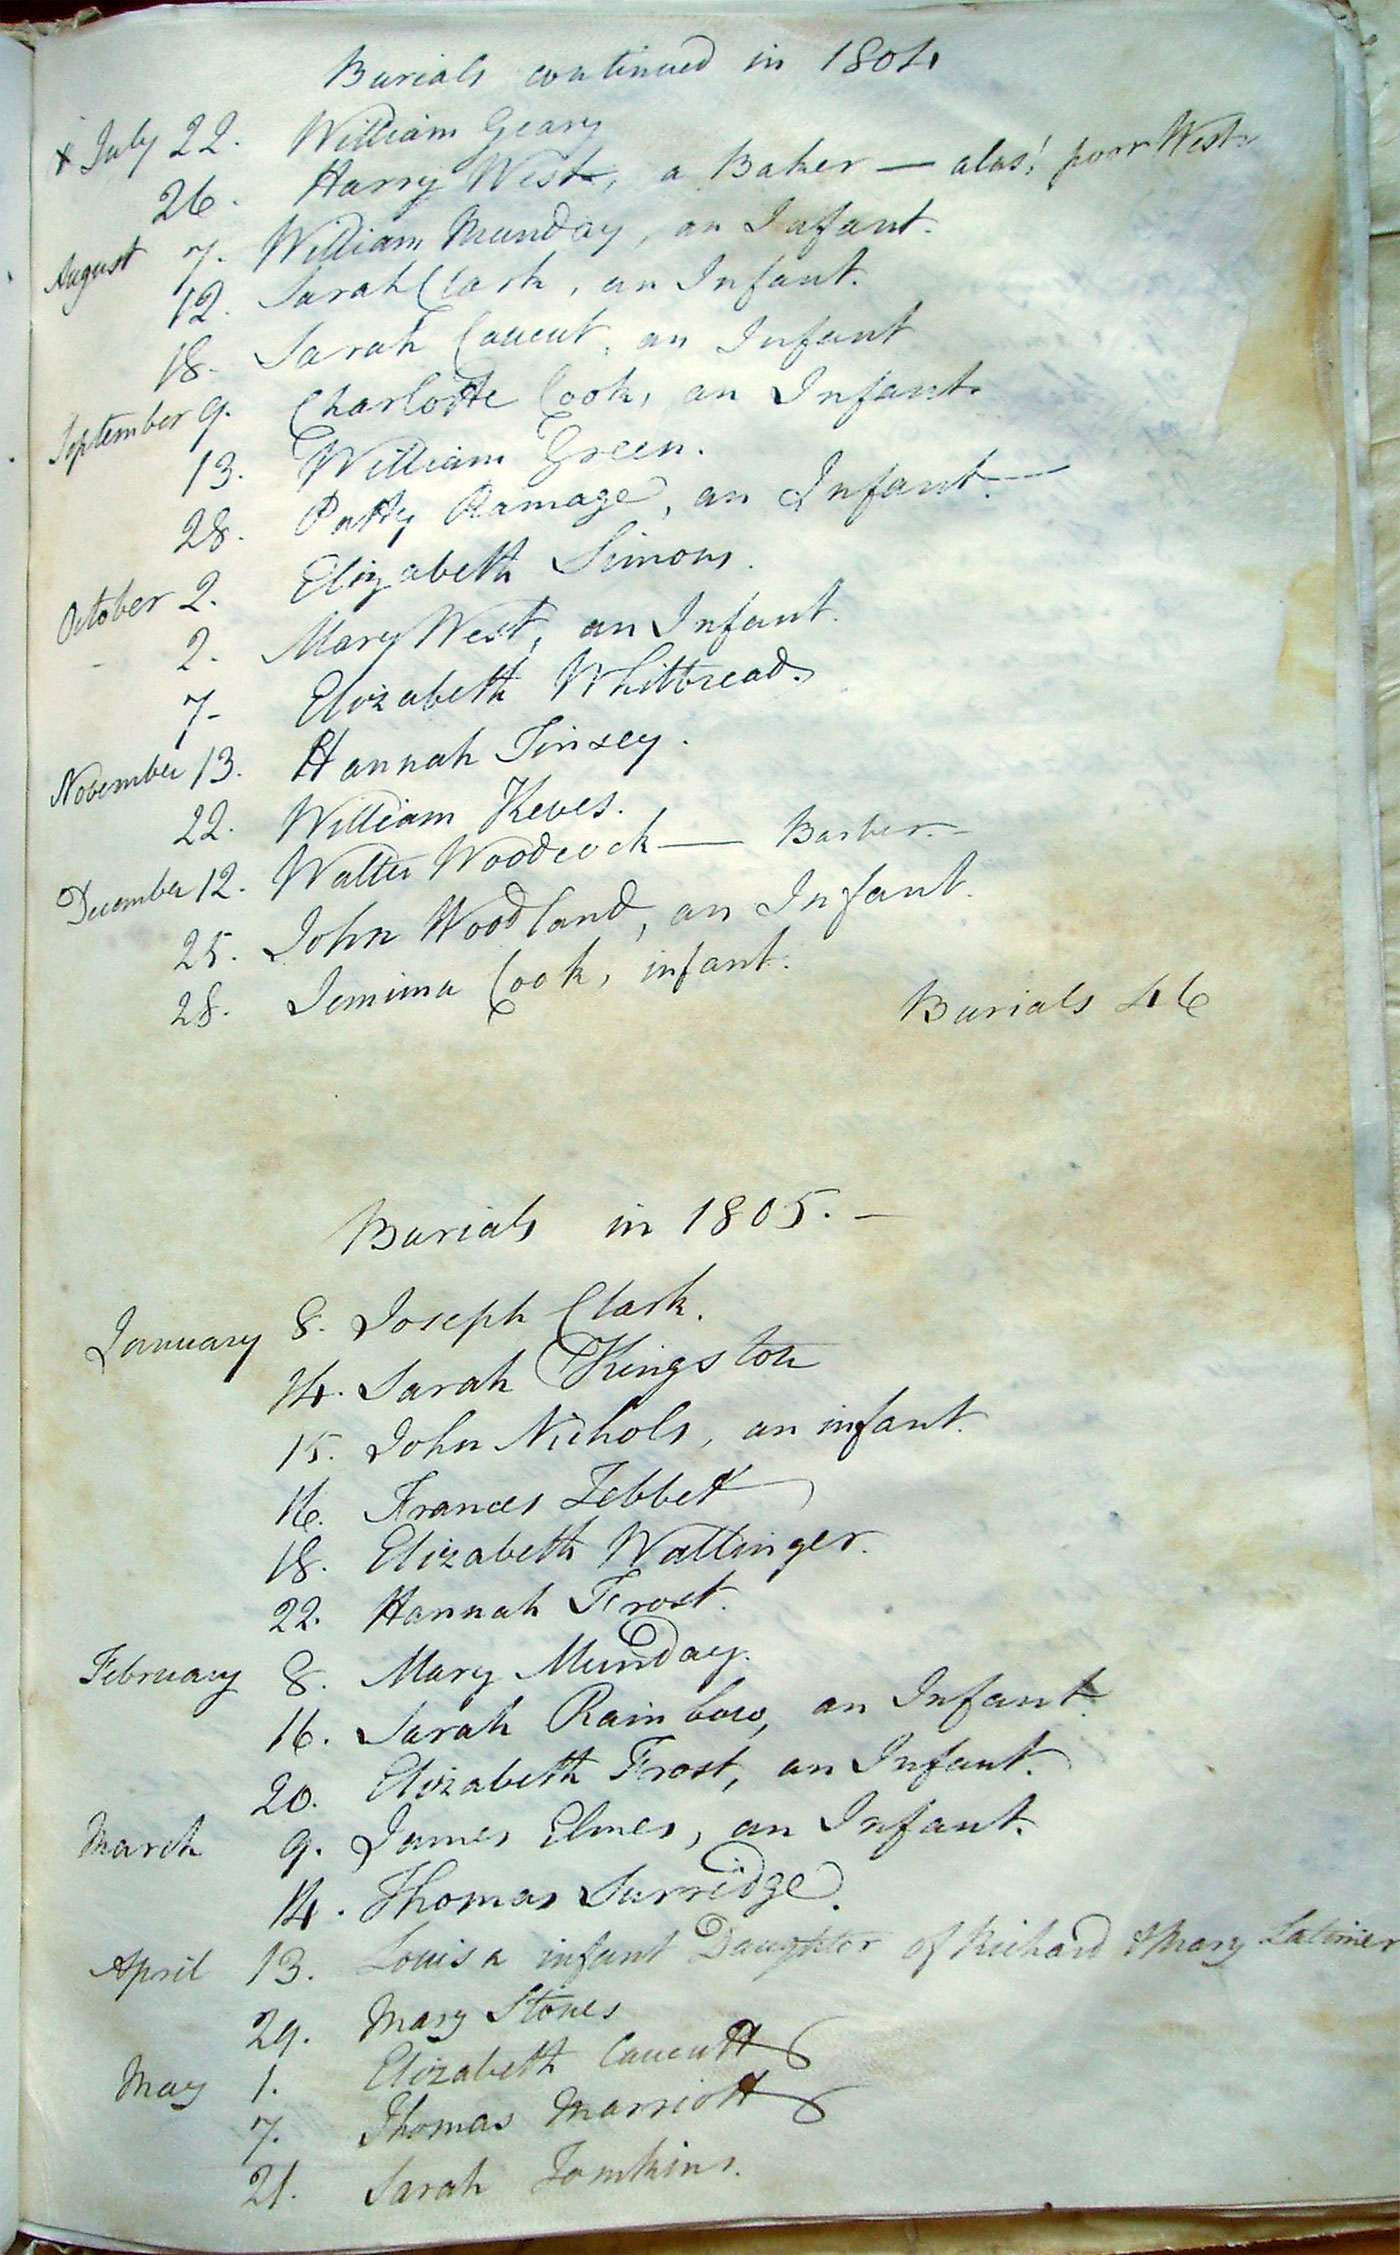 Burials continued in 1804
x July 22. William Geary
26. Harry West, a Baker — alas! poor West.
August 7. William Munday, an Infant.
12. Sarah Clark, an Infant.
18. Sarah Caucut, an Infant
September 9. Charlotte Cook, an Infant.
13. William Green.
28. Patty Ramage, an Infant. —
October 2. Elizabeth Simons.
- 2. Mary West, an Infant.
7- Elizabeth Whitbread.
November 13. Hannah Tinsey.
22. William Keves.
December 12. Walter Woodcock — Barber. -
25. John Woodland, an Infant.
28. Jemima Cook, infant.
Burials 46
Burials in 1805. —
January 8. Joseph Clark.
14. Sarah Kingston
15. John Nichols, an infant.
16. Frances Tebbett
18. Elizabeth Wallinger.
22. Hannah Frost.
February 8. Mary Munday.
16. Sarah Rainbow, an Infant.
20. Elizabeth Frost, an Infant.
March 9. James Elmes, an Infant.
14. Thomas Surridge.
April 13. Louisa infant Daughter of Richard & Mary Latimer
29. Mary Stones
May 1. Elizabeth Caucutt
7. Thomas Marriott
21. Sarah Tomkins.